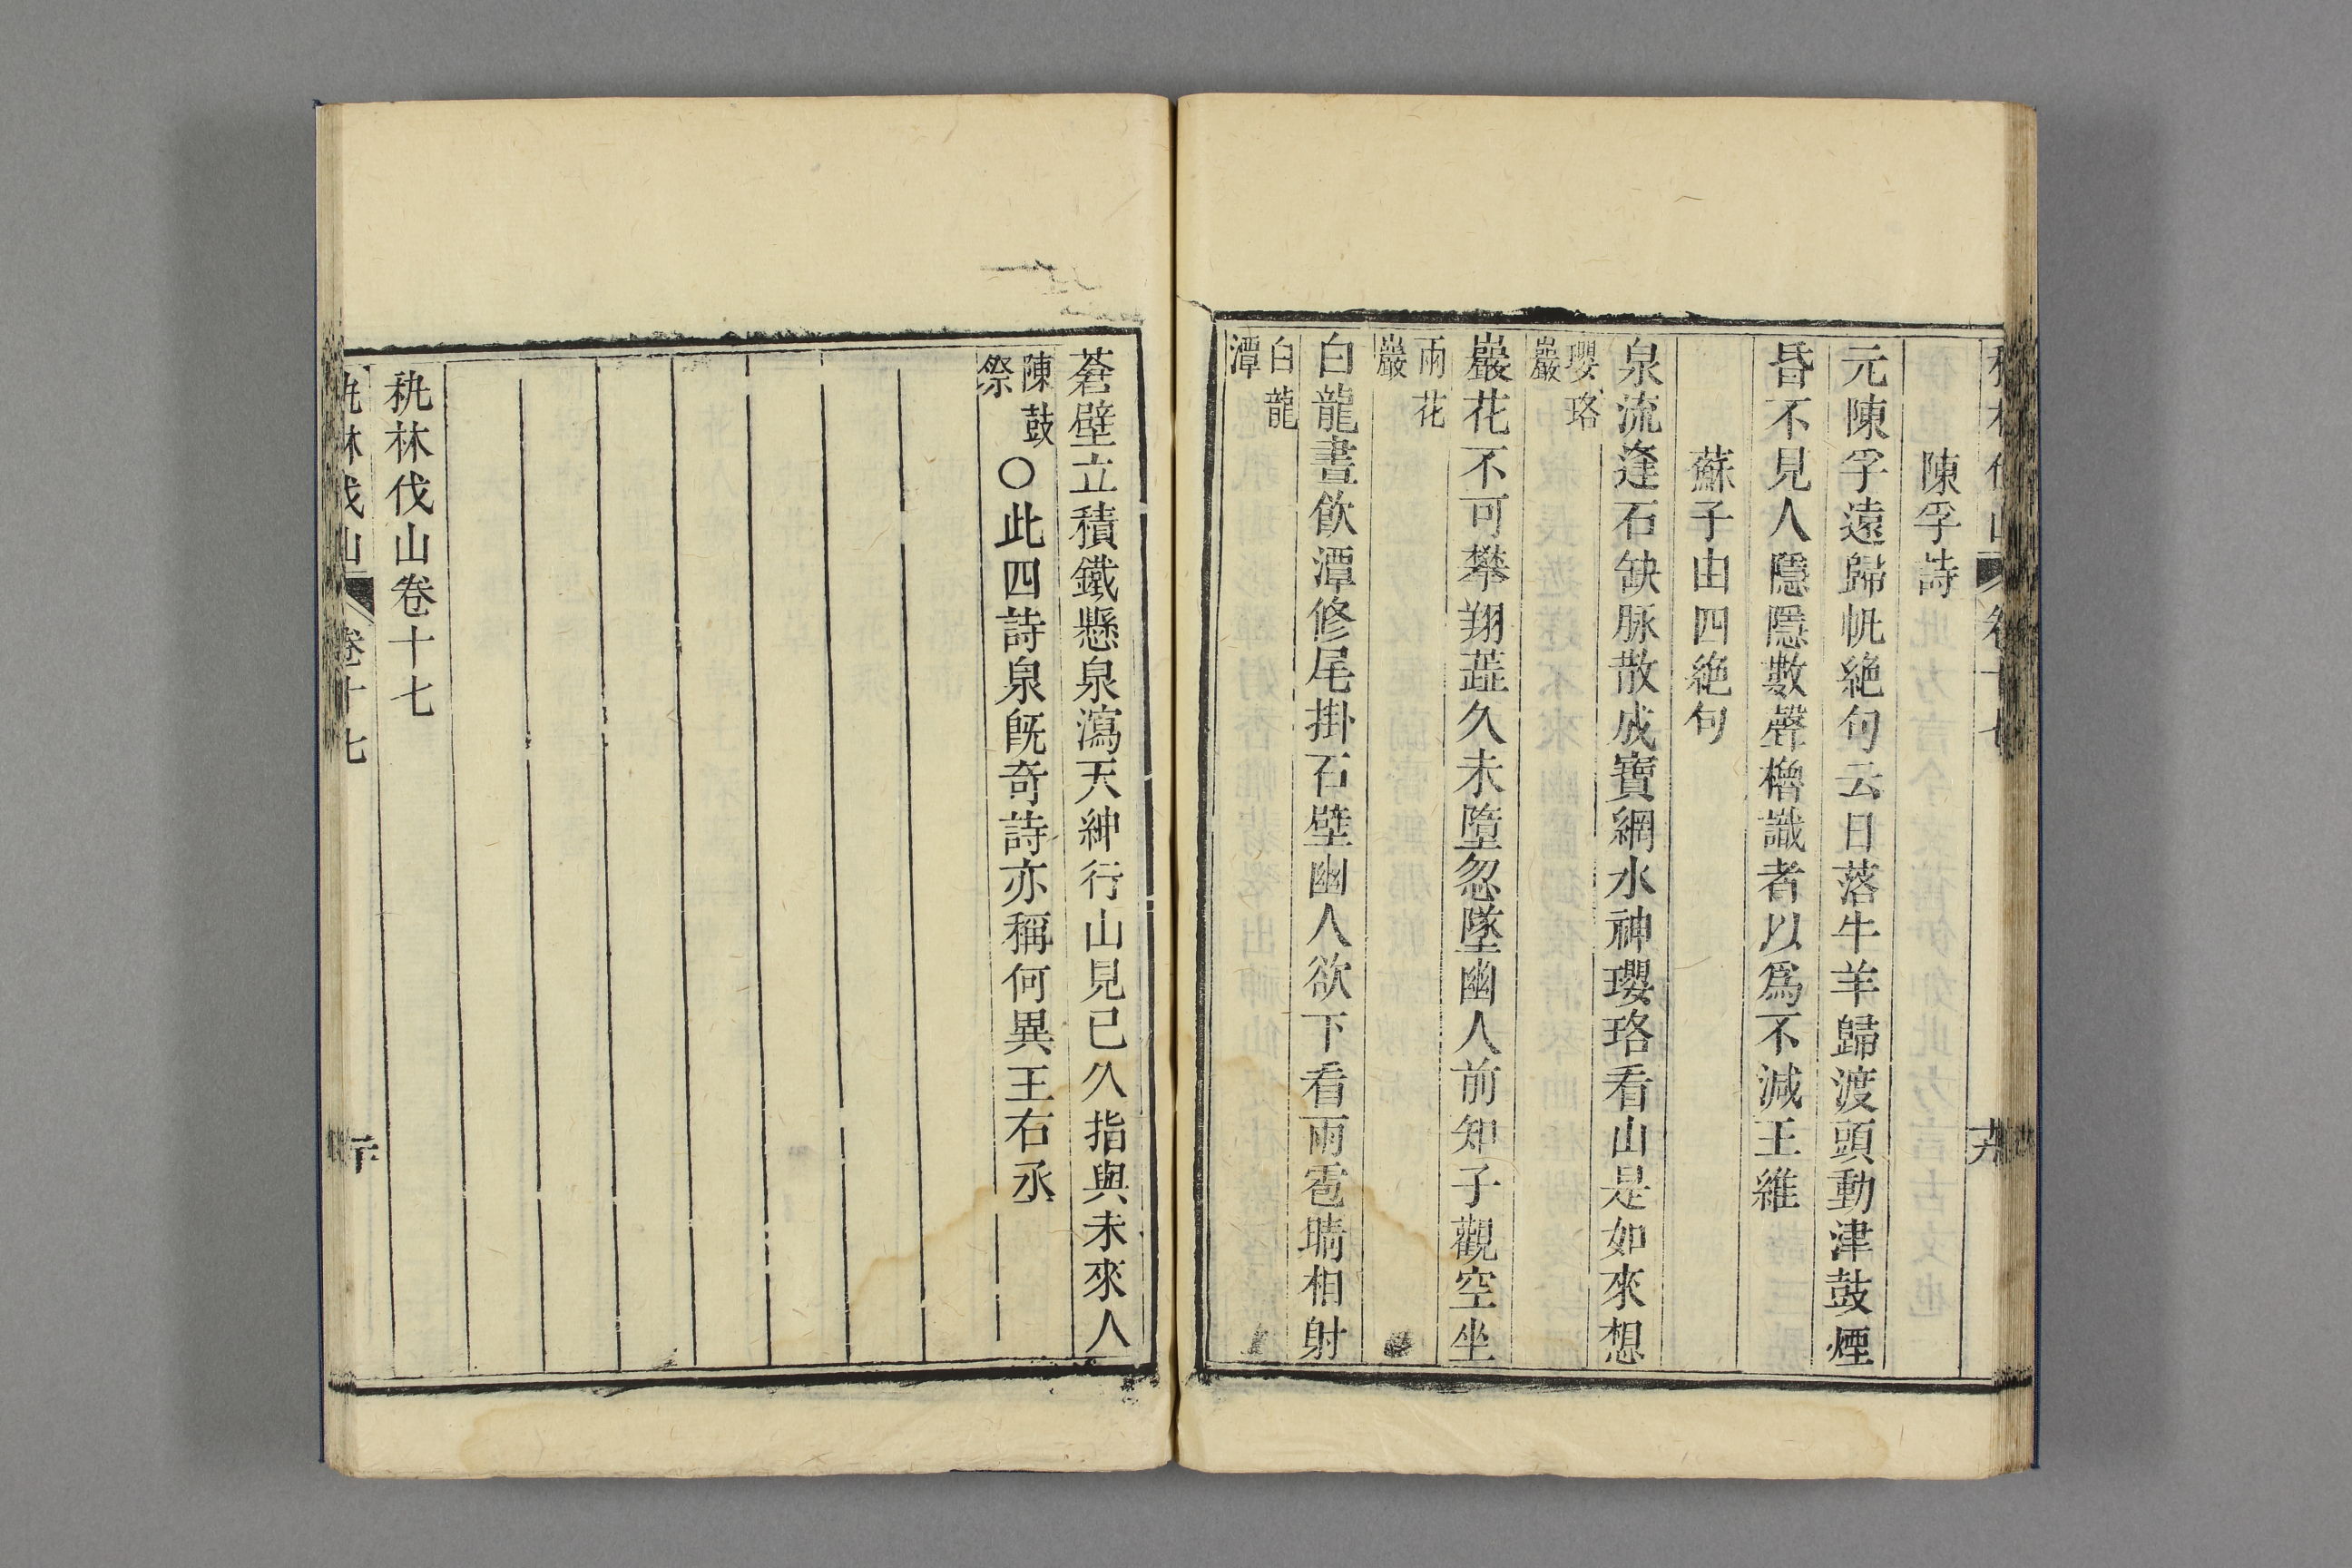 陳孚詩
元陳孚遠歸帆絶句云日落牛羊歸渡頭動津鼓煙
昏不見人隱隱數聲櫓識者以爲不減王維
蘇子由四絶句
泉流逢石缺脉散成寶網水神瓔珞看山是如來想
瓔珞
巖
巖花不可攀翔蘂久未墮忽墜幽人前知子觀空坐
雨花
巖
白龍晝飲潭修尾掛石壁幽人欲下看雨雹晴相射
白龍
潭
蒼壁立積鐵懸泉瀉天紳行山見已久指與未來人
陳鼓
祭
〇此四詩泉旣奇詩亦稱何異王右丞
秇林伐山卷十七
秇林伐山
卷十七